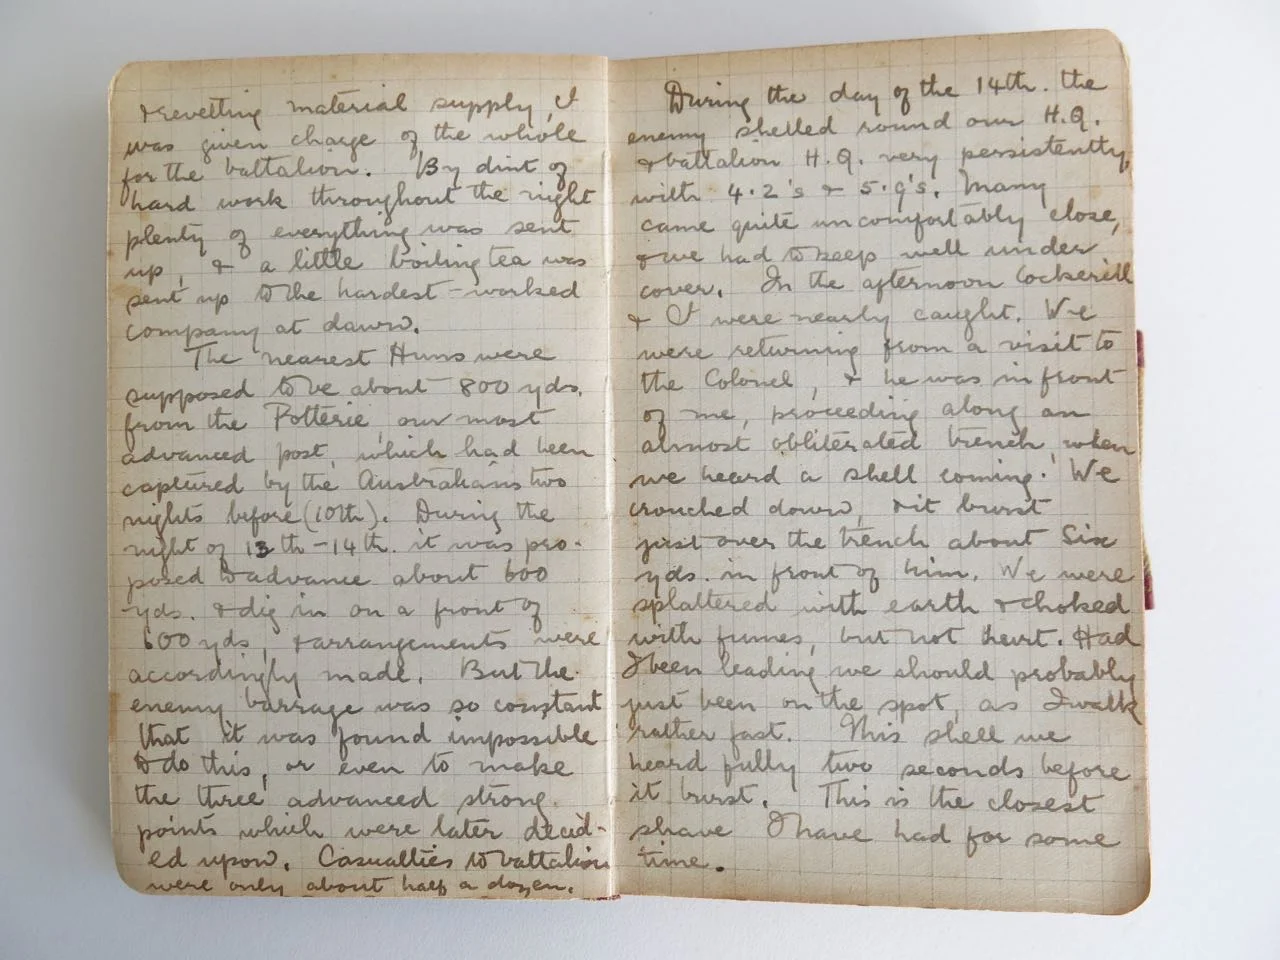 & revetting material supply, I
was given charge of the whole
for the battalion. By dint of
hard work throughout the night
plenty of everything was sent
up, & a little boiling tea was
sent up to the hardest-worked
company at dawn.
The nearest Huns were
supposed to be about 800 yds.
from the Potterie, our most
advanced post, which had been
captured by the Australians two
nights before (10th). During the
night of 13th-14th. it was pro-
posed to advance about 600
yds. & dig in on a front of
600 yds, & arrangements were
accordingly made. But the
enemy barrage was so constant
that it was found impossible
to do this, or even to make
the three advanced strong
points which were later decid-
ed upon. Casualties to battalion
were only about half a dozen.
During the day of the 14th. the
enemy shelled round our H.Q.
& battalion H.Q. very persistently,
with 4.2's & 5.9's. Many
came quite uncomfortably close,
& we had to keep well under
cover. In the afternoon Cockerill
& I were nearly caught. We
were returning from a visit to
the Colonel, & he was in front
of me, proceeding along an
almost obliterated trench, when
we heard a shell coming. We
crouched down, & it burst
just over the trench about six
yds. in front of him. We were
splattered with earth & choked
with fumes, but not hurt. Had
I been leading we should probably
just been on the spot, as I walk
rather fast. This shell we
heard fully two seconds before
it burst. This is the closest
shave I have had for some
time.